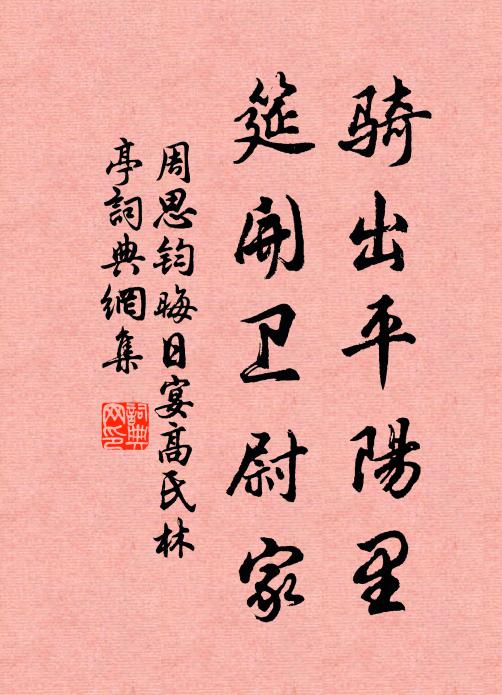 骑出平陽里
筵開卫尉家
周思钧晦日宴高氏林
亭詞典網集
詞典
网印